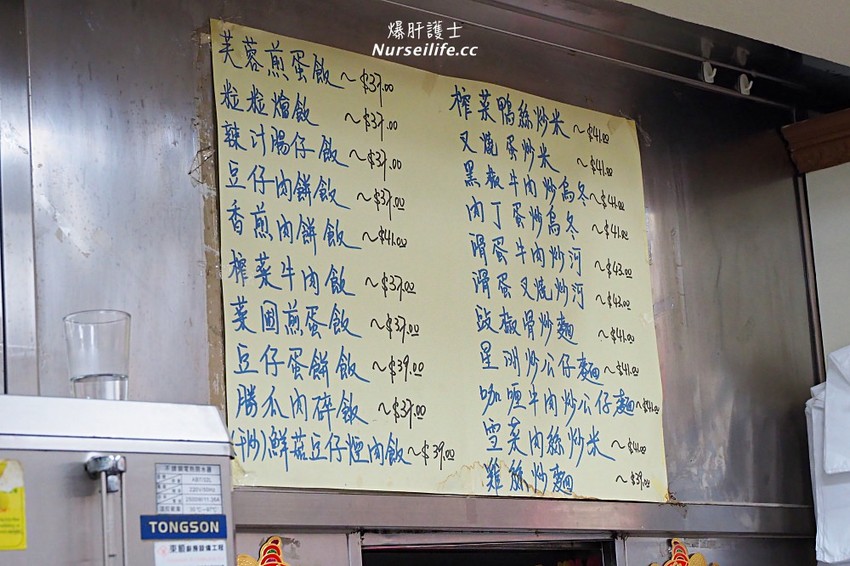 爆肝護士
Nurseilife.cc
芙蓉煎蛋飯～$37.00
粒粒燴飯～$37.00
辣汁腸仔飯～$37.00
豆仔肉餅飯～$37.00
香煎肉餅飯～$41.00
榨菜牛肉飯～$37.00
菜圃煎蛋飯～$37.00
豆仔蛋餅飯～$39.00
勝瓜肉碎飯～$37.00
(干炒)鮮菇豆仔煙肉飯～$39.00
榨菜鴨絲炒米～$41.00
叉燒蛋炒米～$41.00
黑椒牛肉炒烏冬～$41.00
肉丁蛋炒烏冬～$41.00
滑蛋牛肉炒河～$43.00
滑蛋叉燒炒河～$43.00
豉椒骨炒麵～$41.00
星洲炒公仔麵～$41.00
咖喱牛肉炒公仔麵～$41.00
雪菜肉絲炒米～$41.00
雞絲炒麵～$39.00
TONGSON